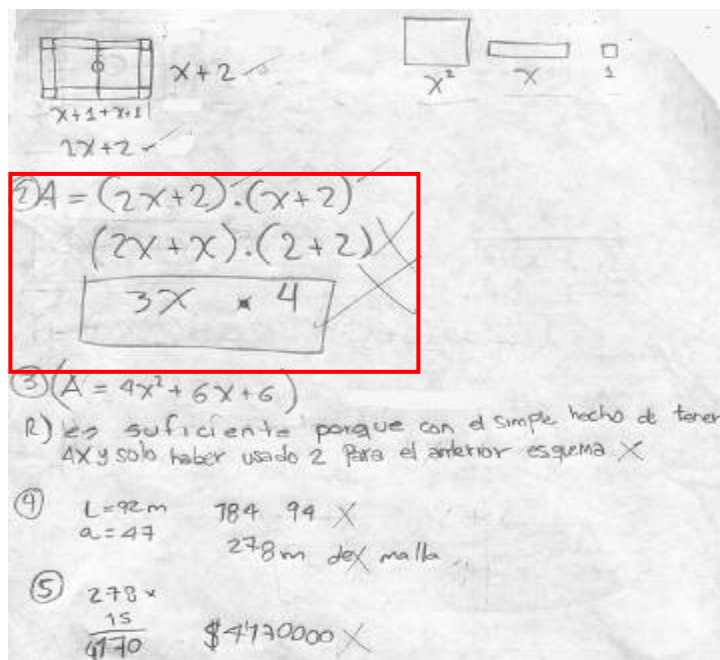 x+2
x² x 1
x+1+x+1
2x+2
② A = (2x+2).(x+2)
(2x+x).(2+2)
3x . 4
③ (A = 4x²+6x+6)
R) es suficiente porque con el simple hecho de tener
4x y solo haber usado 2 Para el anterior esquema X
④ L=92m 784 94 X
a=47
278m de malla
⑤ 278 x
15
4170 $4170000 X